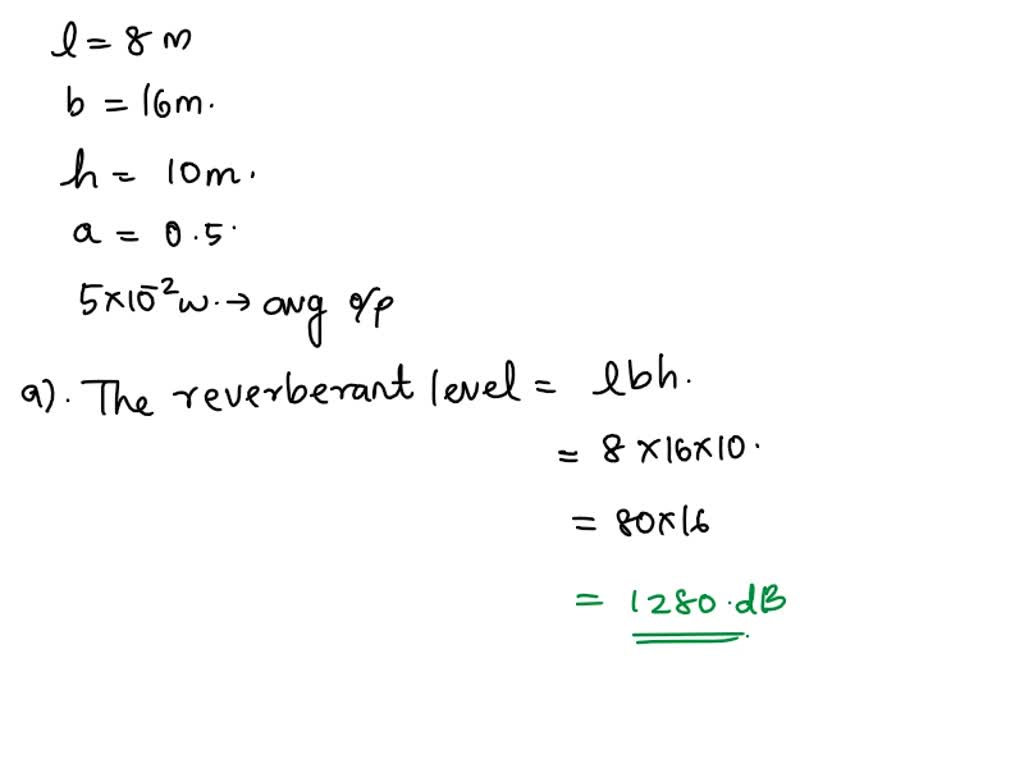 l = 8 m
b = 16m.
h = 10m.
a = 0.5
5×10⁻²w. → avg o/p
a). The reverberant level = lbh.
= 8 ×16×10.
= 80×16
= 1280.dB